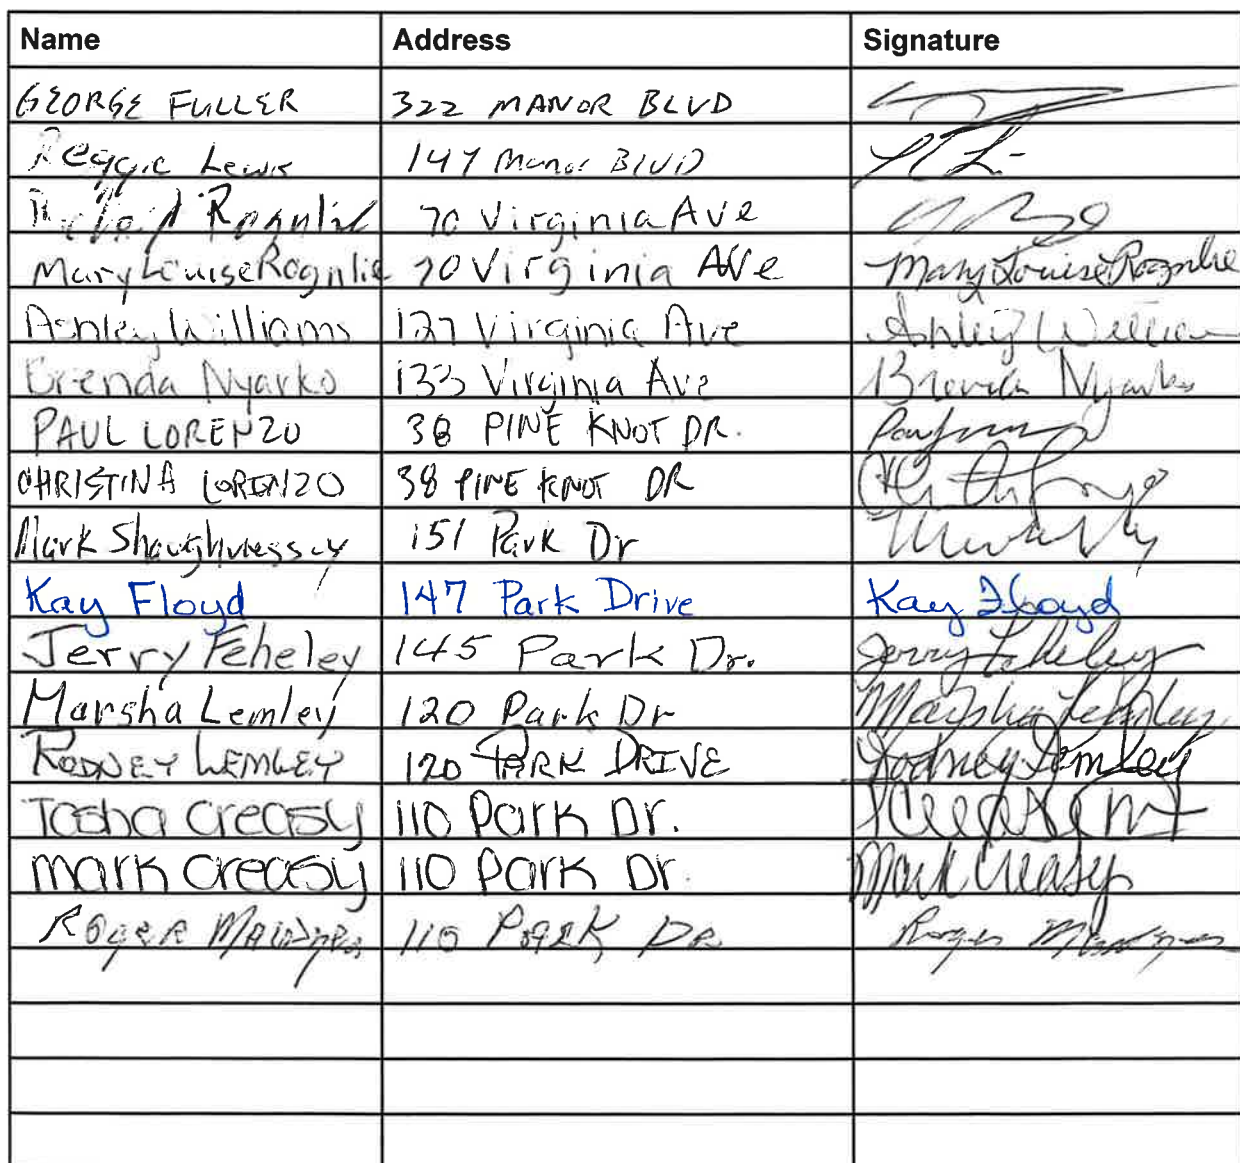 Name Address Signature
GEORGE FULLER 322 MANOR BLVD
Reggie Lewis 147 Manor BLVD
Richard Rognlie 70 Virginia Ave
Mary Louise Rognlie 70 Virginia Ave Mary Louise Rognlie
Ashley Williams 127 Virginia Ave Ashley Williams
Brenda Nyarko 133 Virginia Ave Brenda Nyarko
PAUL LORENZO 38 PINE KNOT DR.
CHRISTINA LORENZO 38 PINE KNOT DR
Mark Shaughnessy 151 Park Dr
Kay Floyd 147 Park Drive Kay Floyd
Jerry Feheley 145 Park Dr. Jerry Feheley
Marsha Lemley 120 Park Dr Marsha Lemley
RODNEY LEMLEY 120 PARK DRIVE Rodney Lemley
Tosha Creasy 110 Park Dr.
Mark Creasy 110 Park Dr. Mark Creasy
ROGER 110 PARK DR Roger